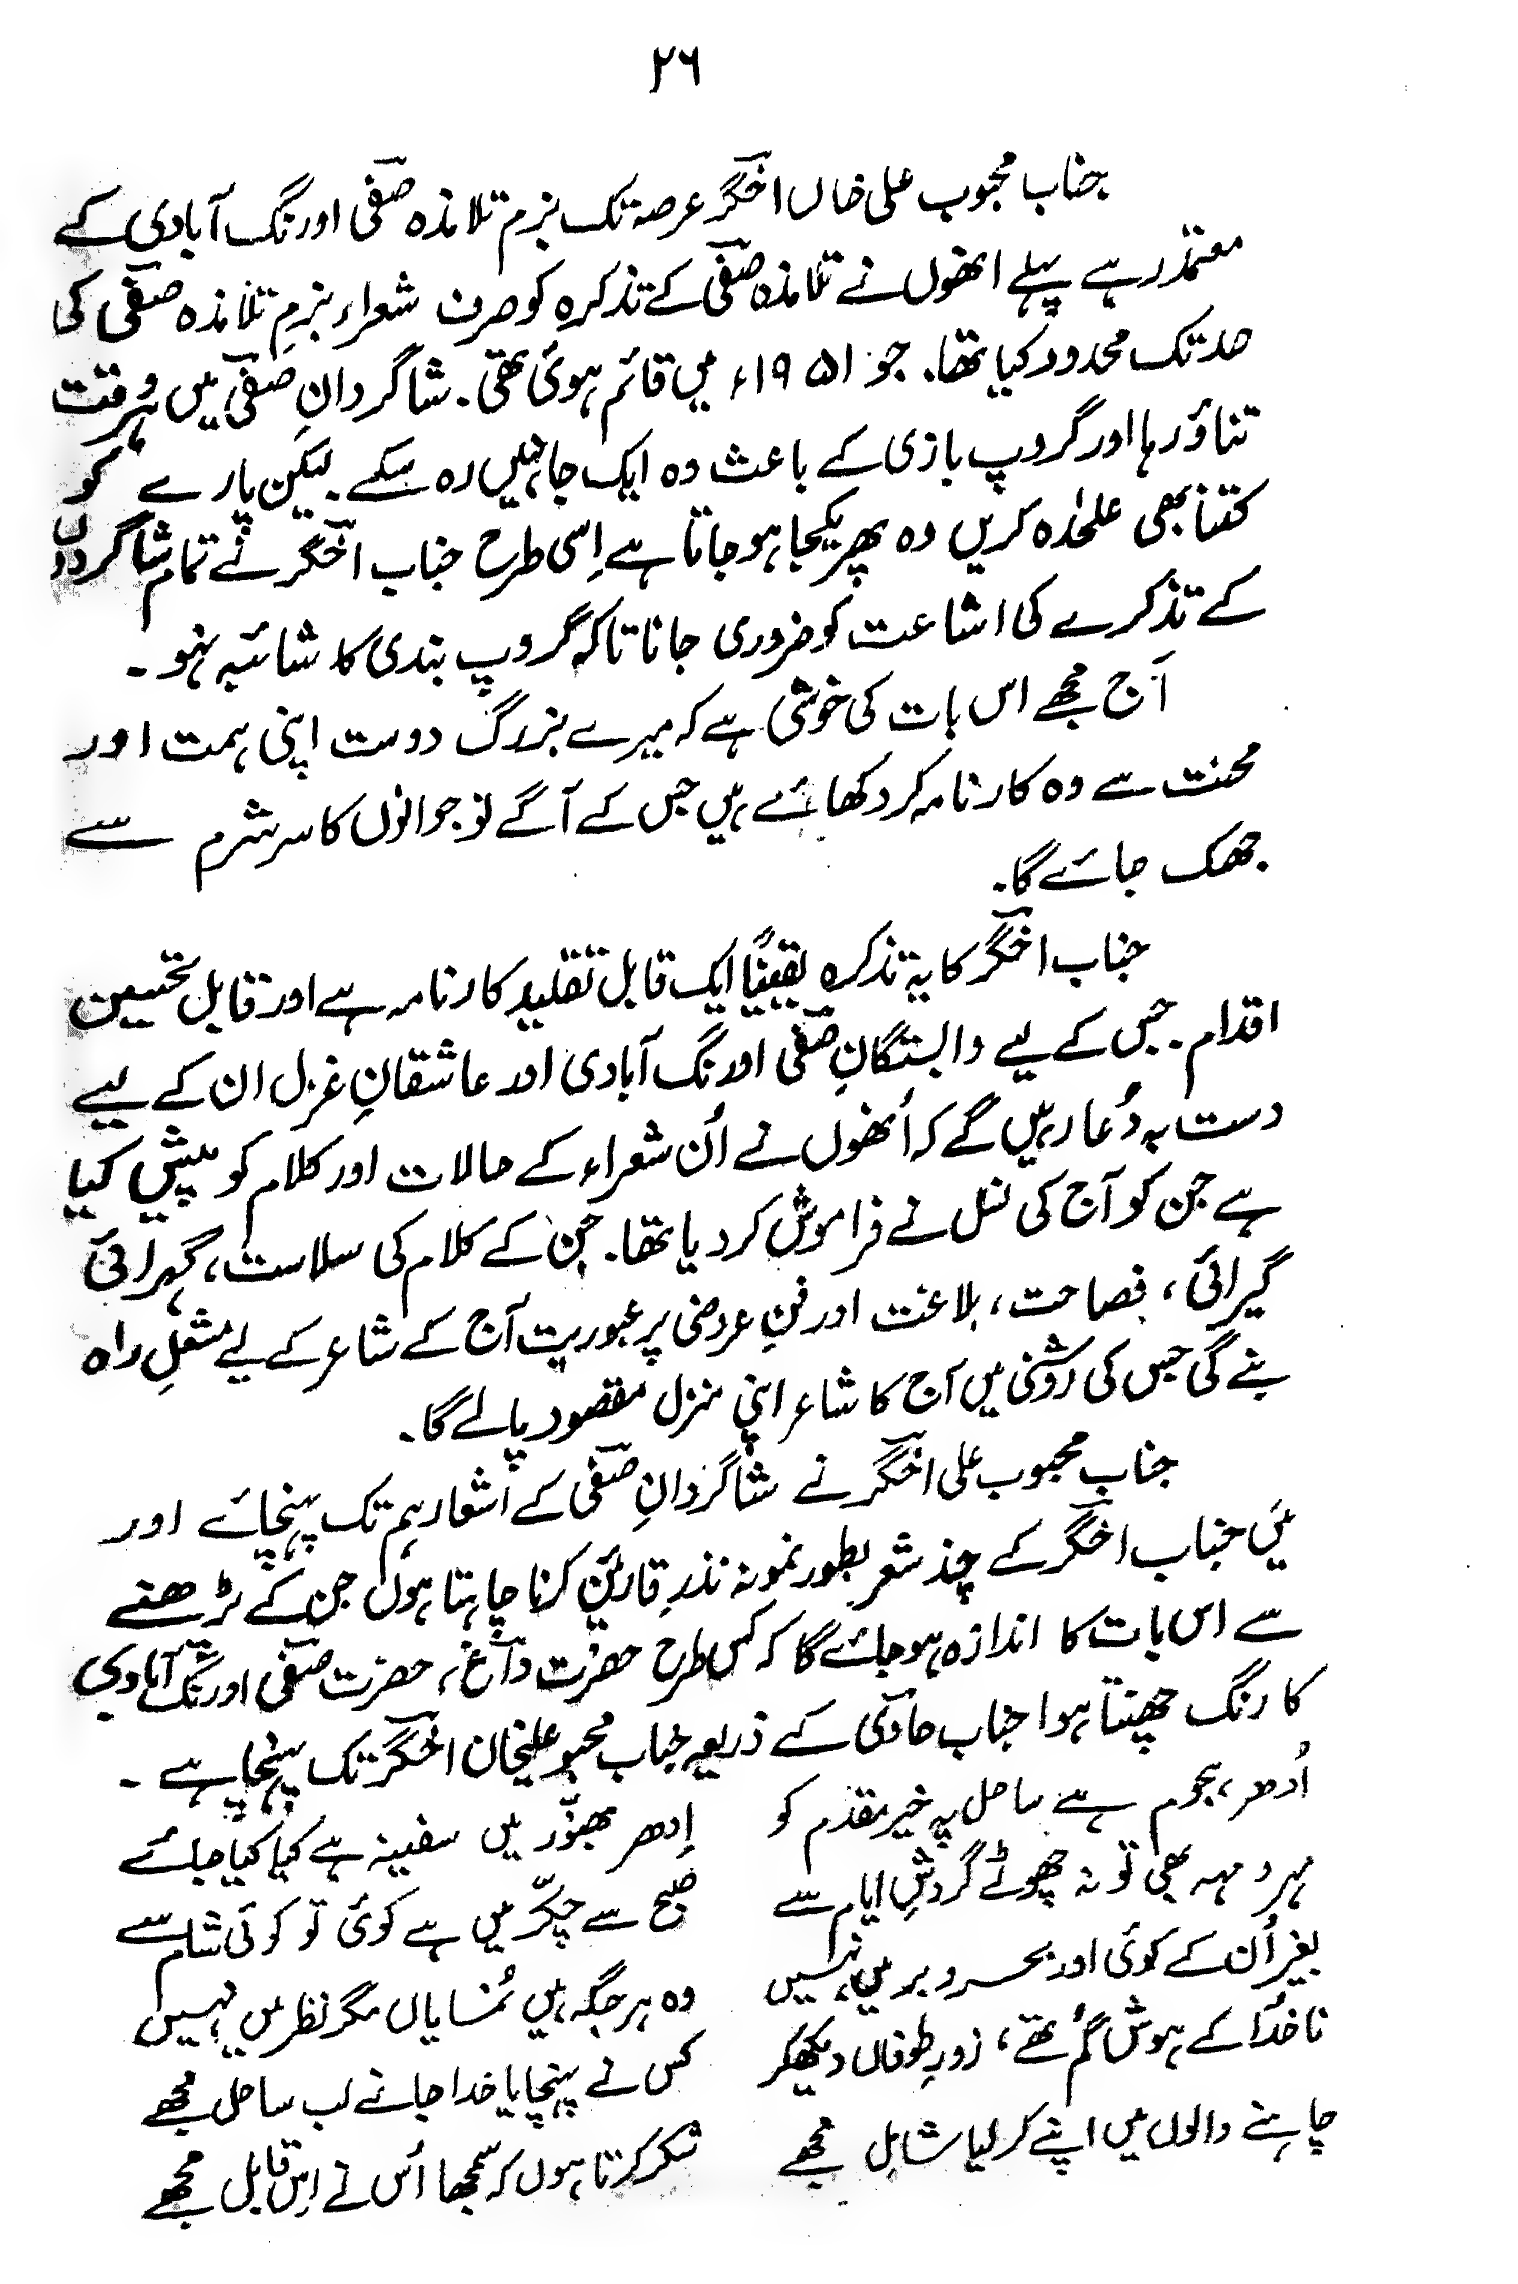 ۲۶
جناب محبوب علی خاں اخگرؔ عرصہ تک بزم تلامذہ صفیؔ اورنگ آبادی کے
معتمد رہے پہلے انھوں نے تلامذہ صفیؔ کے تذکرہ کو صرف شعراء بزمِ تلامذہ صفیؔ کی
حد تک محدود کیا تھا۔ جو ۱۹۵۱ء میں قائم ہوئی تھی۔ شاگردانِ صفیؔ میں ہر وقت
تناؤ رہا اور گروپ بازی کے باعث وہ ایک جا نہیں رہ سکے۔ لیکن پارے کو
کتنا بھی علٰحدہ کریں وہ پھر یکجا ہو جاتا ہے اِسی طرح جناب اخگرؔ نے تمام شاگردوں
کے تذکرے کی اشاعت کو ضروری جانا تاکہ گروپ بندی کا شائبہ نہو۔
آج مجھے اس بات کی خوشی ہے کہ میرے بزرگ دوست اپنی ہمت اور
محنت سے وہ کارنامہ کر دکھائے ہیں جس کے آگے نوجوانوں کا سر شرم سے
جھک جائے گا۔
جناب اخگرؔ کا یہ تذکرہ یقیناً ایک قابل تقلید کارنامہ ہے اور قابل تحسین
اقدام۔ جس کے لیے وابستگانِ صفیؔ اورنگ آبادی اور عاشقانِ غزل ان کے لیے
دست بہ دُعا رہیں گے کہ اُنھوں نے اُن شعراء کے حالات اور کلام کو پیش کیا
ہے جن کو آج کی نسل نے فراموش کر دیا تھا۔ جن کے کلام کی سلاست، گہرائی
گیرائی، فصاحت، بلاغت اور فنِ عروض پر عبوریت آج کے شاعر کے لیے مشعلِ راہ
بنے گی جس کی روشنی میں آج کا شاعر اپنی منزل مقصود پالے گا۔
جناب محبوب علی اخگرؔ نے شاگردانِ صفیؔ کے اشعار ہم تک پہنچائے اور
میَں جناب اخگرؔ کے چند شعر بطور نمونہ نذرِ قارئین کرنا چاہتا ہوں جن کے پڑھنے
سے اس بات کا اندازہ ہو جائے گا کہ کس طرح حضرت داغؔ، حضرت صفیؔ اورنگ آبادی
کا رنگ چھنتا ہوا جناب حاویؔ کے ذریعہ جناب محبوب علیخان اخگرؔ تک پہنچا ہے۔
اُدھر، ہجوم ہے ساحل پہ خیر مقدم کو اِدھر بھنور میں سفینہ ہے کیا کیا جائے
مہر و مہہ بھی تو نہ چھوٹے گردشِ ایام سے صبح سے چکّر میں ہے کوئی تو کوئی شام سے
بغیر اُن کے کوئی اور بحر و بر میں نہیں وہ ہر جگہ ہیں نُمایاں مگر نظر میں نہیں
ناخدا کے ہوش گُم تھے، زورِ طوفاں دیکھکر کس نے پہنچایا خدا جانے لب ساحل مجھے
چاہنے والوں میں اپنے کر لیا شامل مجھے شکر کرتا ہوں کہ سمجھا اُس نے اِس قابل مجھے